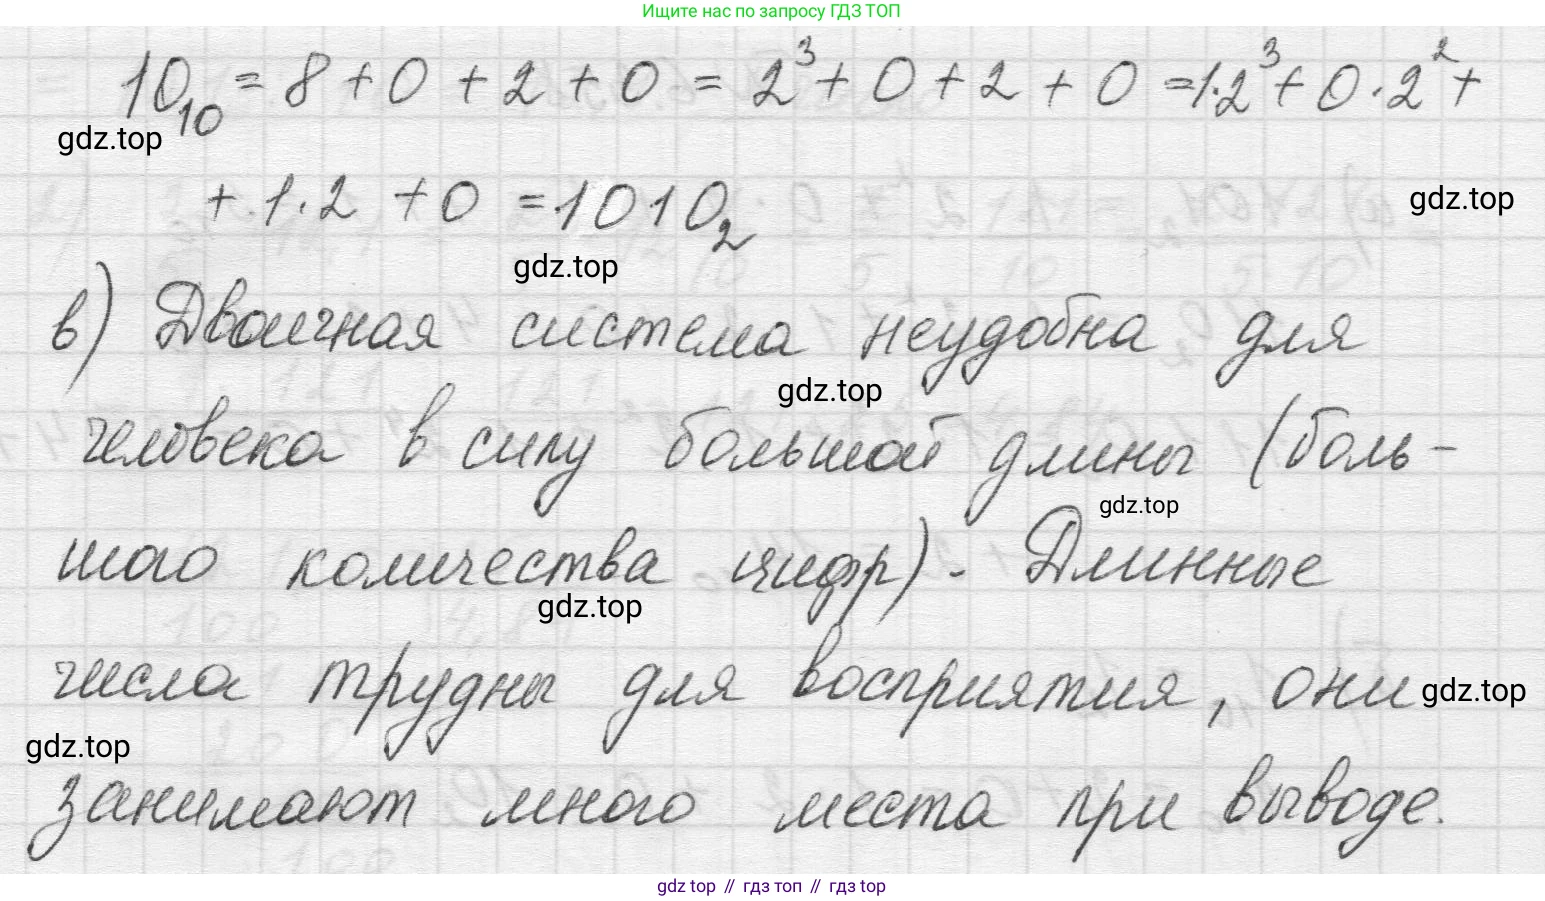 Ищите нас по запросу ГДЗ ТОП
10₁₀ = 8 + 0 + 2 + 0 = 2³ + 0 + 2 + 0 = 1·2³ + 0·2² +
gdz.top
+ 1·2 + 0 = 1010₂
gdz.top
gdz.top
в) Двоичная система неудобна для
gdz.top
человека в силу большой длины (боль-
gdz.top
шого количества цифр). Длинные
gdz.top
числа трудны для восприятия, они
gdz.top
gdz.top
занимают много места при выводе.
gdz top // гдз топ // гdz top